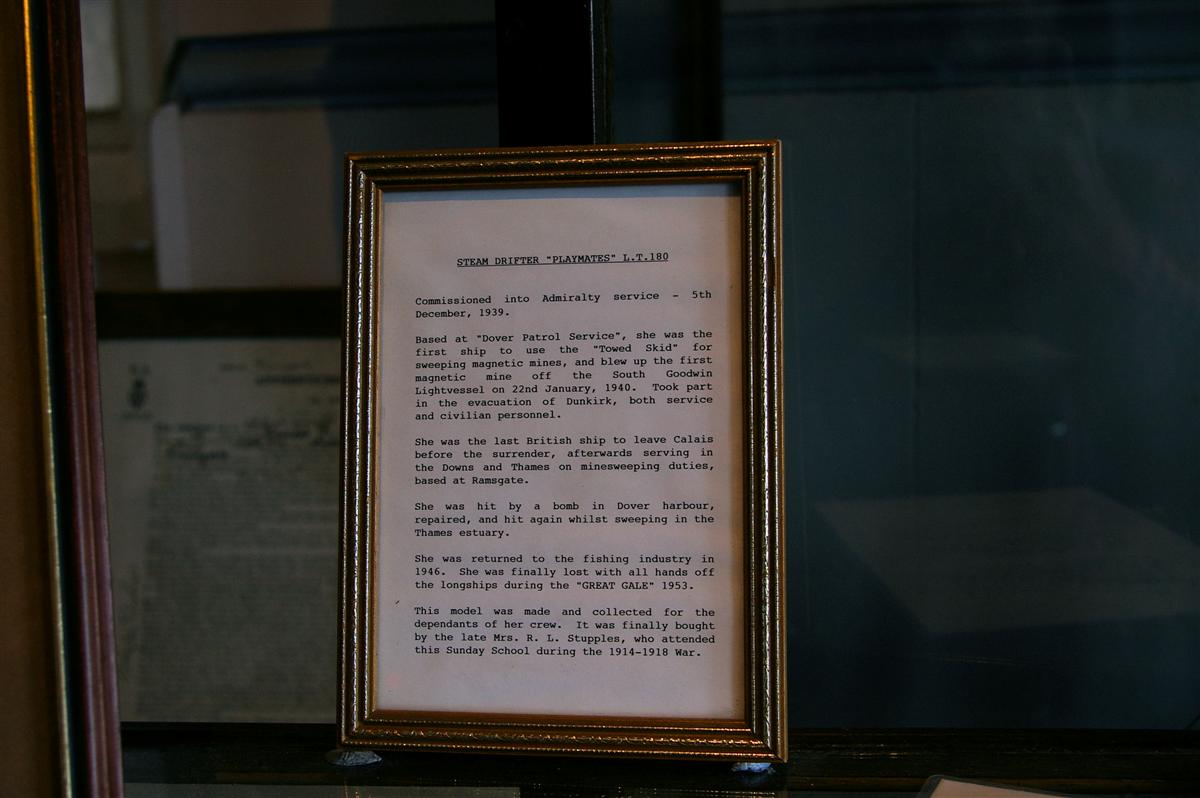 STEAM DRIFTER "PLAYMATES" L.T.180
Commissioned into Admiralty service - 5th
December, 1939.
Based at "Dover Patrol Service", she was the
first ship to use the "Towed Skid" for
sweeping magnetic mines, and blew up the first
magnetic mine off the South Goodwin
Lightvessel on 22nd January, 1940. Took part
in the evacuation of Dunkirk, both service
and civilian personnel.
She was the last British ship to leave Calais
before the surrender, afterwards serving in
the Downs and Thames on minesweeping duties,
based at Ramsgate.
She was hit by a bomb in Dover harbour,
repaired, and hit again whilst sweeping in the
Thames estuary.
She was returned to the fishing industry in
1946. She was finally lost with all hands off
the longships during the "GREAT GALE" 1953.
This model was made and collected for the
dependants of her crew. It was finally bought
by the late Mrs. R. L. Stupples, who attended
this Sunday School during the 1914-1918 War.